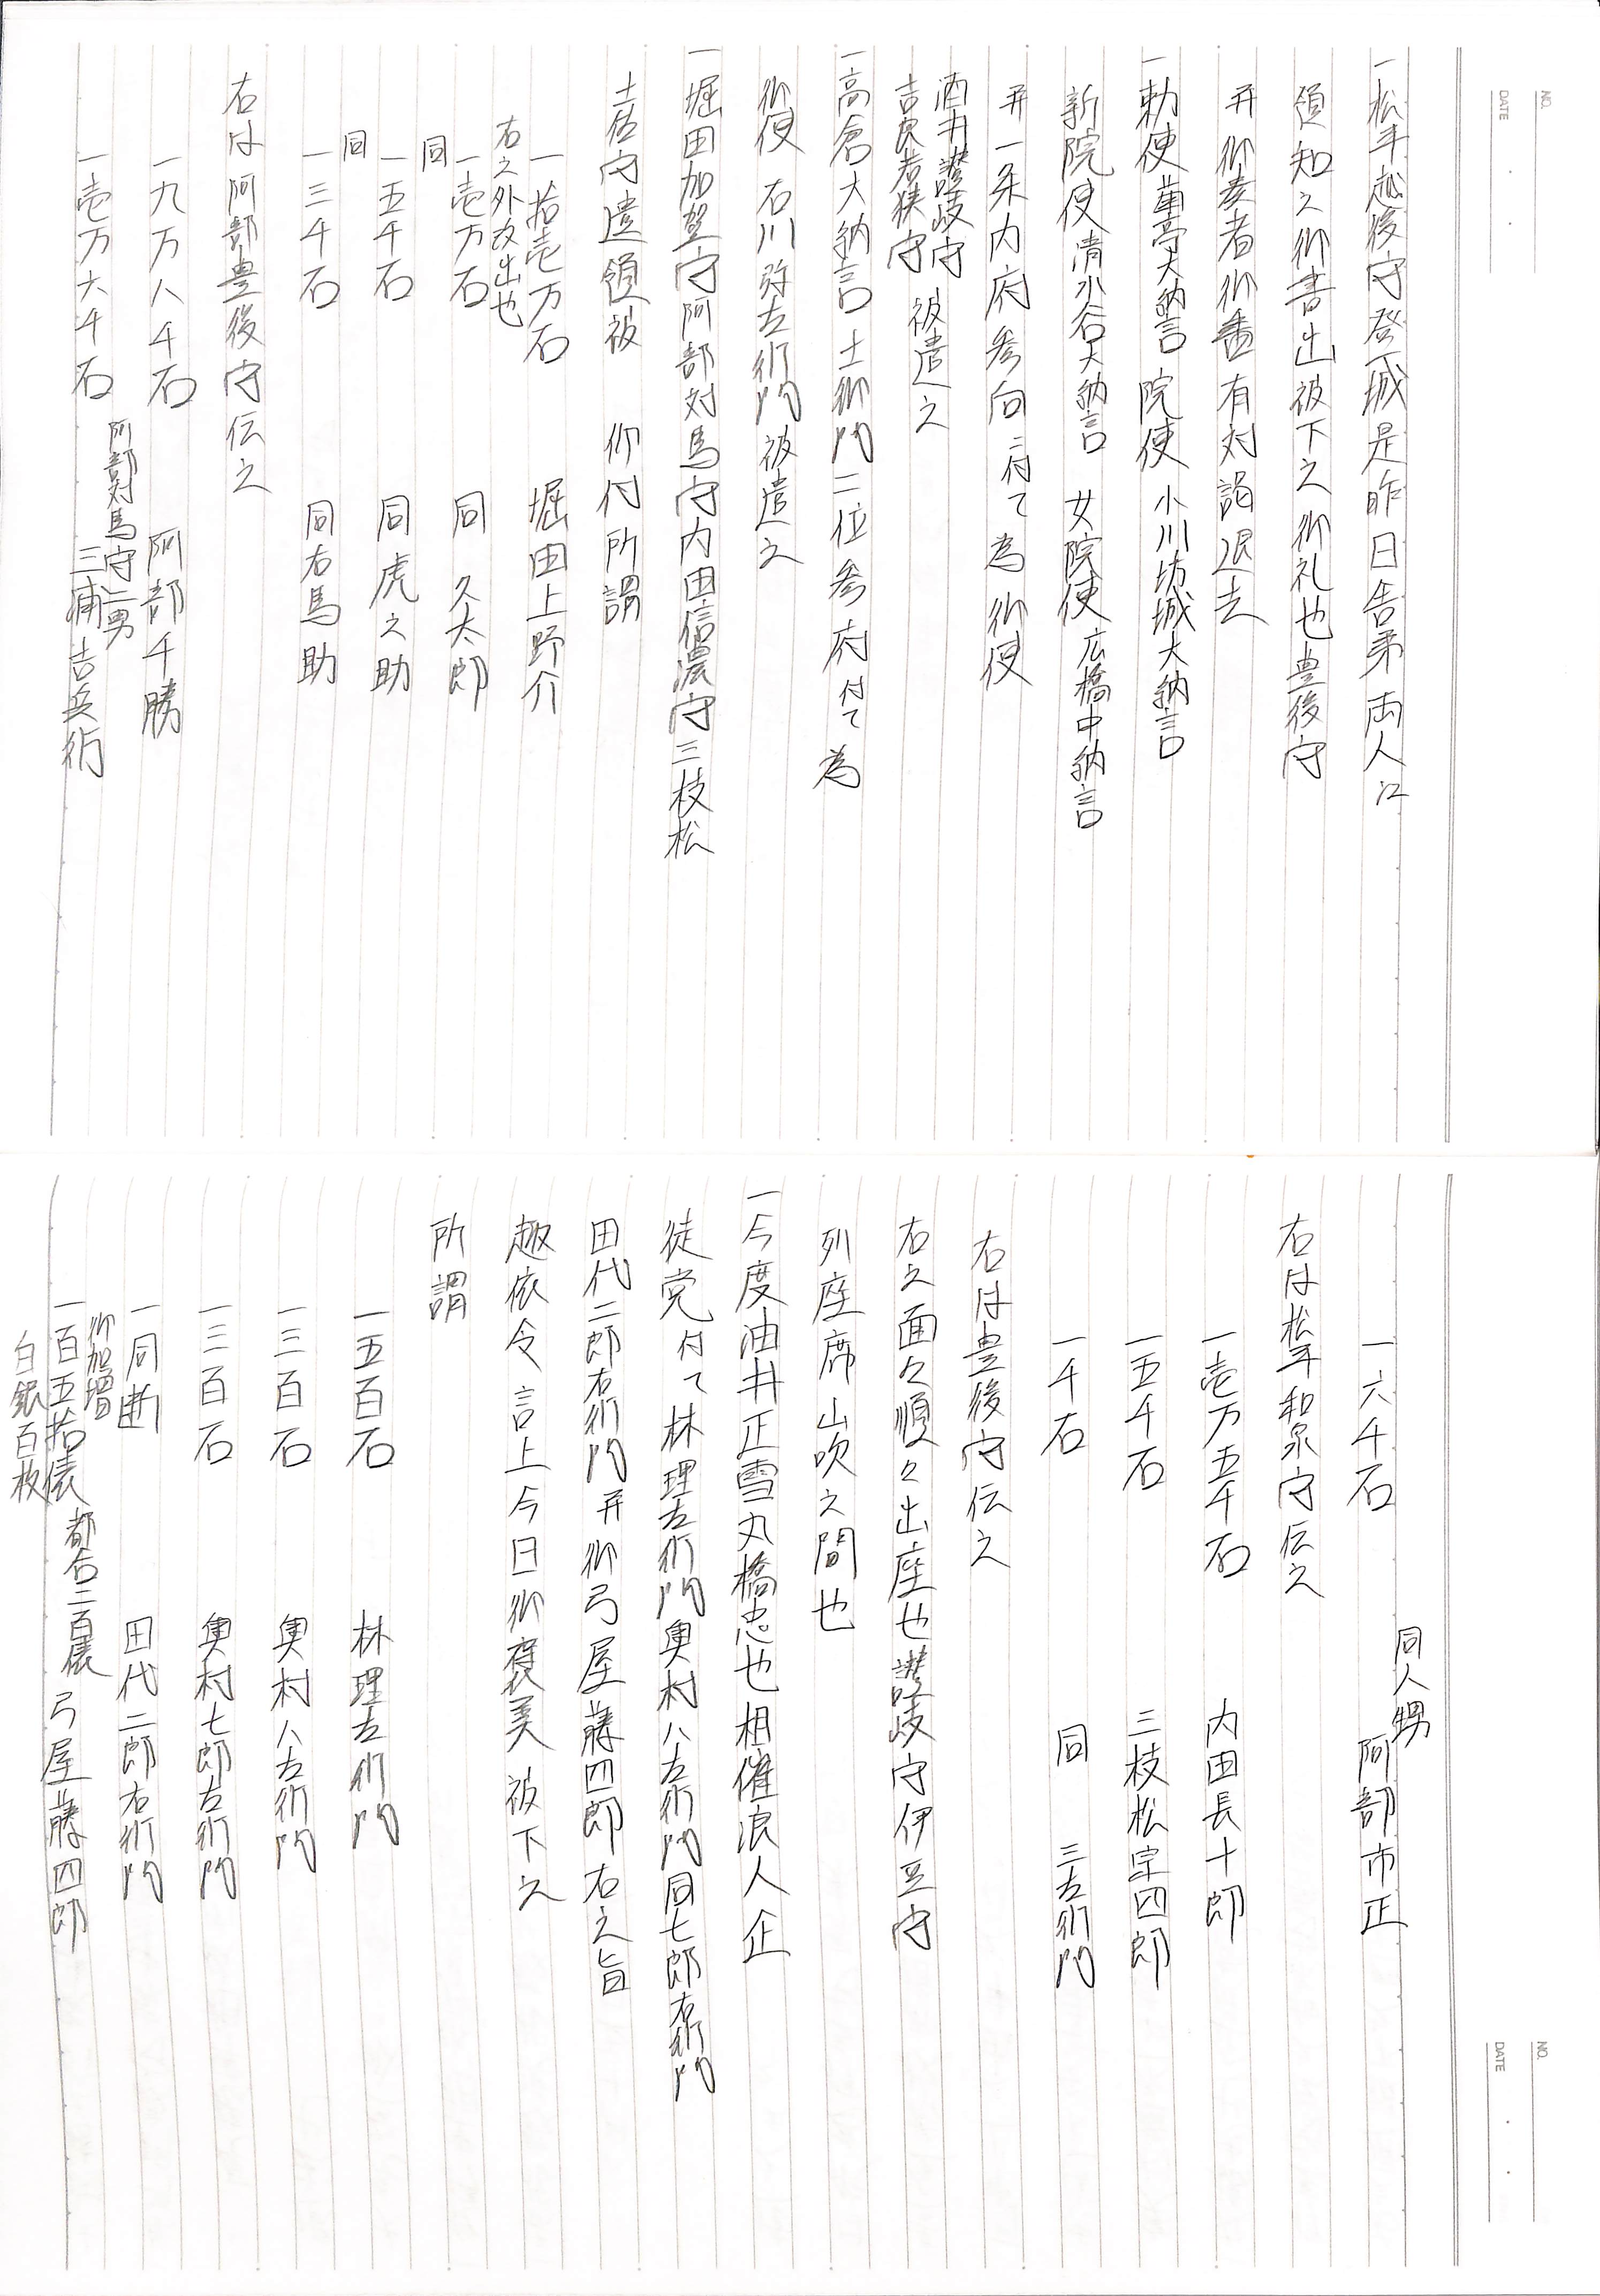 NO.
DATE
一松平越後守登城是昨日舎弟両人江
領知之御書出被下之御礼也豊後守
并御奏者御番有対謁退去
一勅使菊亭大納言 院使 小川坊城大納言
新院使清水谷大納言 女院使広橋中納言
并一条内府参向ニ付て為御使
酒井讃岐守
吉良若狭守 被遣之
一高倉大納言土御門二位参府付て為
御使 石川弥左衛門被遣之
一堀田加賀守阿部対馬守内田信濃守三枝松
土佐守遺領被 仰付所謂
一拾壱万石 堀田上野介
右之外改出也
一壱万石 同 久太郎
同
一五千石 同虎之助
同
一三千石 同右馬助
右は阿部豊後守伝之
一九万八千石 阿部千勝
阿部対馬守二男
一壱万六千石 三浦吉兵衛
NO.
DATE
同人甥
一六千石 阿部市正
右は松平和泉守伝之
一壱万五千石 内田長十郎
一五千石 三枝松宗四郎
一千石 同 三左衛門
右は豊後守伝之
右之面々順々出座也讃岐守伊豆守
列座席山吹之間也
一今度油井正雪丸橋忠也相催浪人企
徒党付て林理左衛門奥村八左衛門同七郎右衛門
田代二郎右衛門并御弓屋藤四郎右之旨
趣依令言上今日御褒美被下之
所謂
一五百石 林理左衛門
一三百石 奥村八左衛門
一三百石 奥村七郎左衛門
一同断 田代二郎右衛門
御加増
一百五拾俵 都合三百俵 弓屋藤四郎
白銀百枚